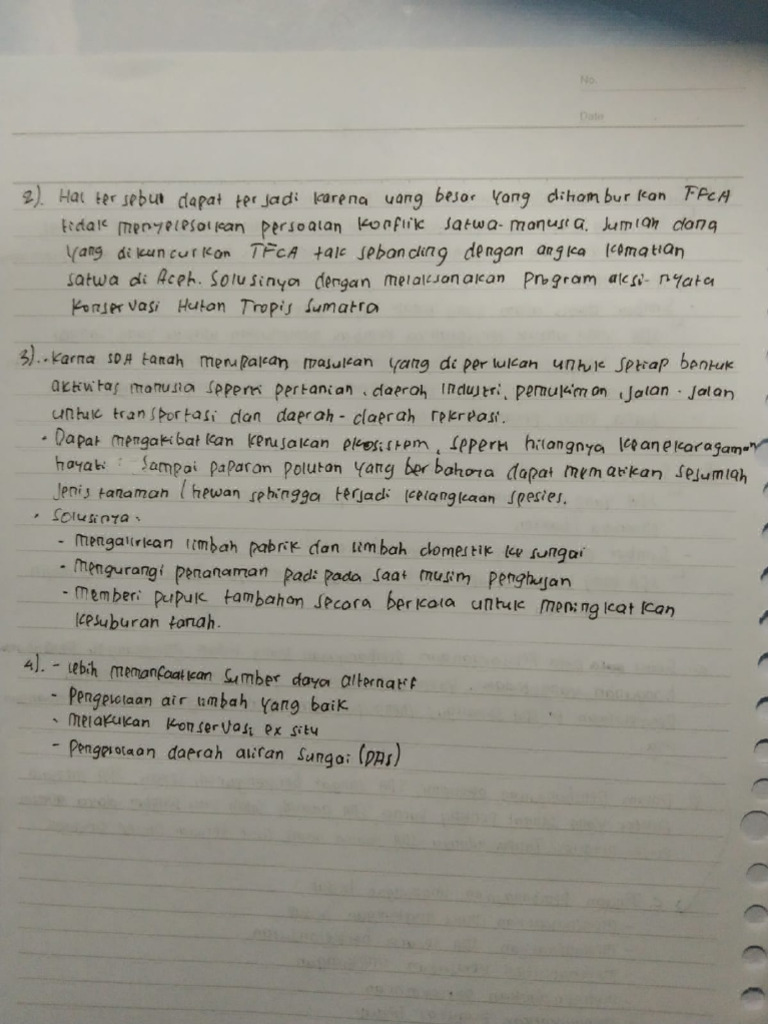 No.
Date
2). Hal tersebut dapat terjadi karena uang besar yang dihamburkan TFCA
tidak menyelesaikan persoalan konflik satwa-manusia. Jumlah dana
yang dikuncurkan TFCA tak sebanding dengan angka kematian
satwa di Aceh. Solusinya dengan melaksanakan program aksi-nyata
Konservasi Hutan Tropis Sumatra
3). • Karna SDA tanah merupakan masukan yang diperlukan untuk setiap bentuk
aktivitas manusia seperti pertanian, daerah industri, pemukiman, jalan-jalan
untuk transportasi dan daerah-daerah rekreasi.
• Dapat mengakibatkan kerusakan ekosistem, seperti hilangnya keanekaragaman
hayati. Sampai paparan polutan yang berbahaya dapat mematikan sejumlah
jenis tanaman / hewan sehingga terjadi kelangkaan spesies.
• Solusinya:
- mengalirkan limbah pabrik dan limbah domestik ke sungai
- mengurangi penanaman padi pada saat musim penghujan
- Memberi pupuk tambahan secara berkala untuk meningkatkan
kesuburan tanah.
4). - Lebih memanfaatkan sumber daya alternatif
- Pengelolaan air limbah yang baik
- Melakukan konservasi ex situ
- Pengelolaan daerah aliran sungai (DAS)